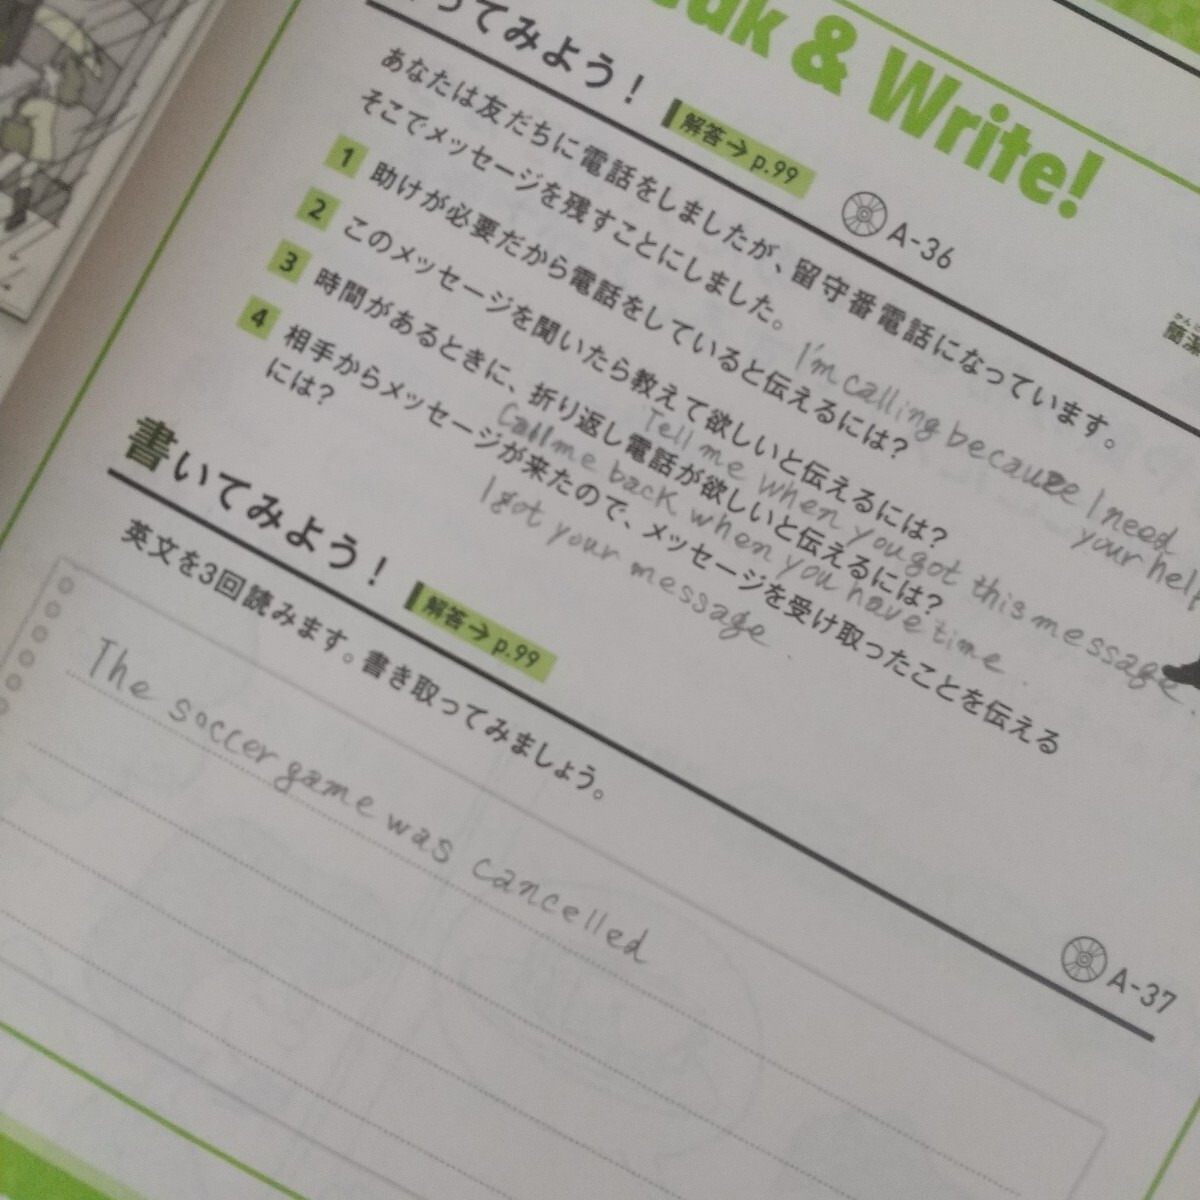 & Write!
ってみよう！
解答→p.99
A-36
あなたは友だちに電話をしましたが、留守番電話になっています。
そこでメッセージを残すことにしました。
1 助けが必要だから電話をしていると伝えるには？
I'm calling because I need
your help
2 このメッセージを聞いたら教えて欲しいと伝えるには？
Tell me when you got this message.
3 時間があるときに、折り返し電話が欲しいと伝えるには？
Call me back when you have time.
4 相手からメッセージが来たので、メッセージを受け取ったことを伝える
には？
I got your message.
書いてみよう！
解答→p.99
A-37
英文を3回読みます。書き取ってみましょう。
The soccer game was cancelled